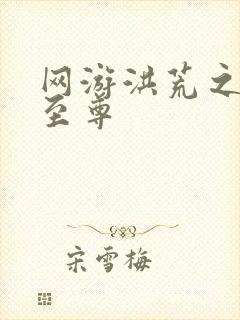 网游洪荒之
至尊
宋雪梅